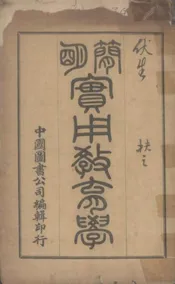 簡明
實用教育學
中國圖書公司編輯印行
伏生